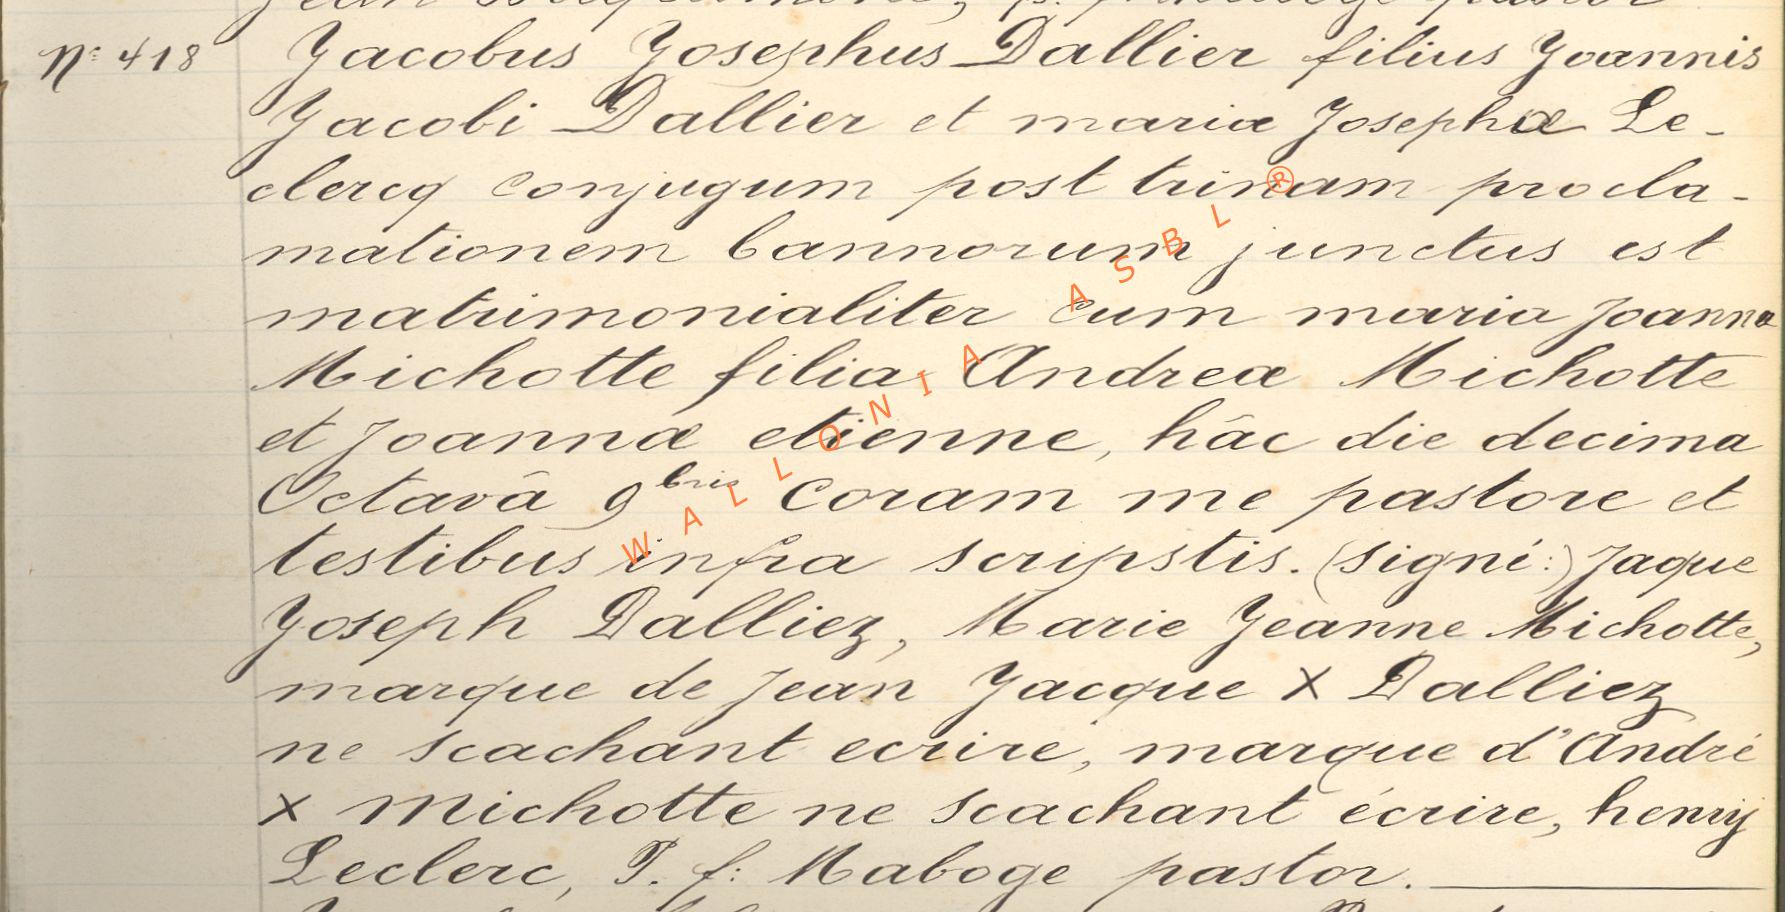 N: 418 Jacobus Josephus Dallier filius Joannis
Jacobi Dallier et mariæ Josephæ Le-
clercq conjugum post trinam procla-
mationem bannorum junctus est
matrimonialiter cum maria Joanna
Michotte filia Andreæ Michotte
et Joannæ etienne, hâc die decima
Octavâ 9bris coram me pastore et
testibus infra scripstis. (signé:) Jaque
Joseph Dalliez, Marie Jeanne Michotte,
marque de Jean Jacque X Dalliez
ne scachant ecrire, marque d'André
X Michotte ne scachant écrire, henry
Leclerc, P. f: Maboge pastor.
WALLONIA ASBL ®